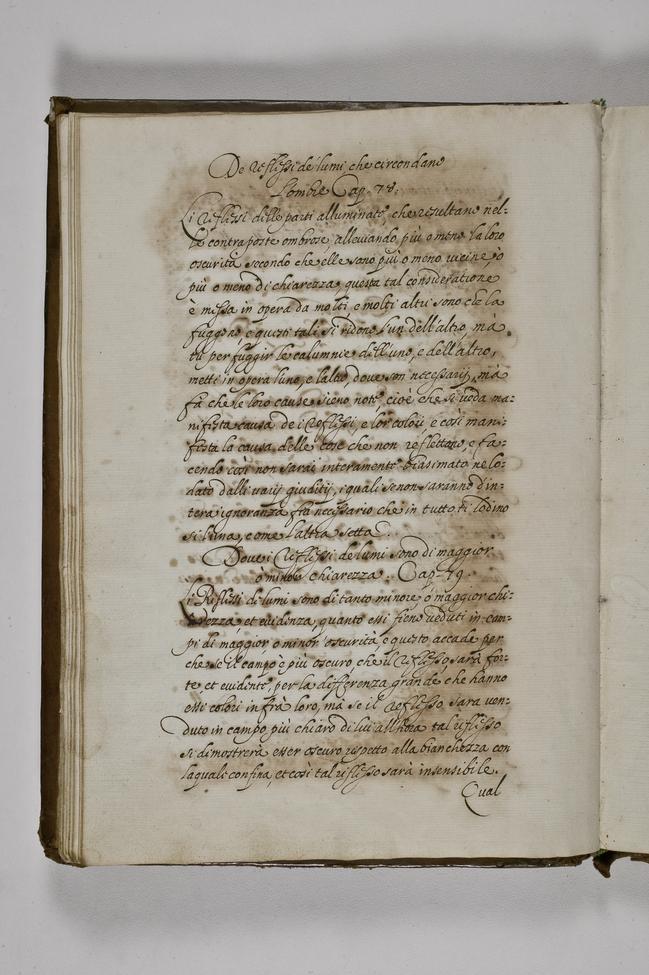 De Reflessi de lumi che circondano
l'ombre Cap. 78.
Li Reflessi delle parti alluminate, che resultano nel-
le contraposte ombrose, alleviando, più o meno la loro
oscurità secondo che elle sono più o meno vicine, o
più o meno di chiarezza, questa tal consideratione
è messa in opera da molti e molti altri sono che la
fuggono e questi tali si ridono l'un dell'altro, mà
tu per fuggir le calumnie dell'uno, e dell'altro,
metti in opera l'uno, e l'altro, dove son necessarij, mà
fà che le loro cause sieno note, cioè che si veda ma-
nifesta causa de i Reflessi, e lor colori, e così mani-
festa la causa delle cose che non reflettono, e fa-
cendo così non sarai interamente biasimato ne lo-
dato dalli varij giuditij, i quali se non saranno d'in-
tera ignoranza fia necessario che in tutto ti lodino
si l'una, come l'altra setta.
Dove i Reflessi de lumi sono di maggior
ò minor chiarezza. Cap. 79.
Li Riflessi di lumi sono di tanto minore ò maggior chi-
arezza et evidenza, quanto essi fieno veduti in cam-
pi di maggior o minor oscurità e questo accade per
che se il campo è più oscuro, che il Reflesso, sarà for-
te, et evidente, per la differenza grande che hanno
essi colori in frà loro, mà se il reflesso sara ven-
duto in campo più chiaro di lui all'hora tal riflesso
si dimostrerà esser oscuro rispetto alla bianchezza con
la quale confina, et così tal riflesso sarà insensibile.
Qual